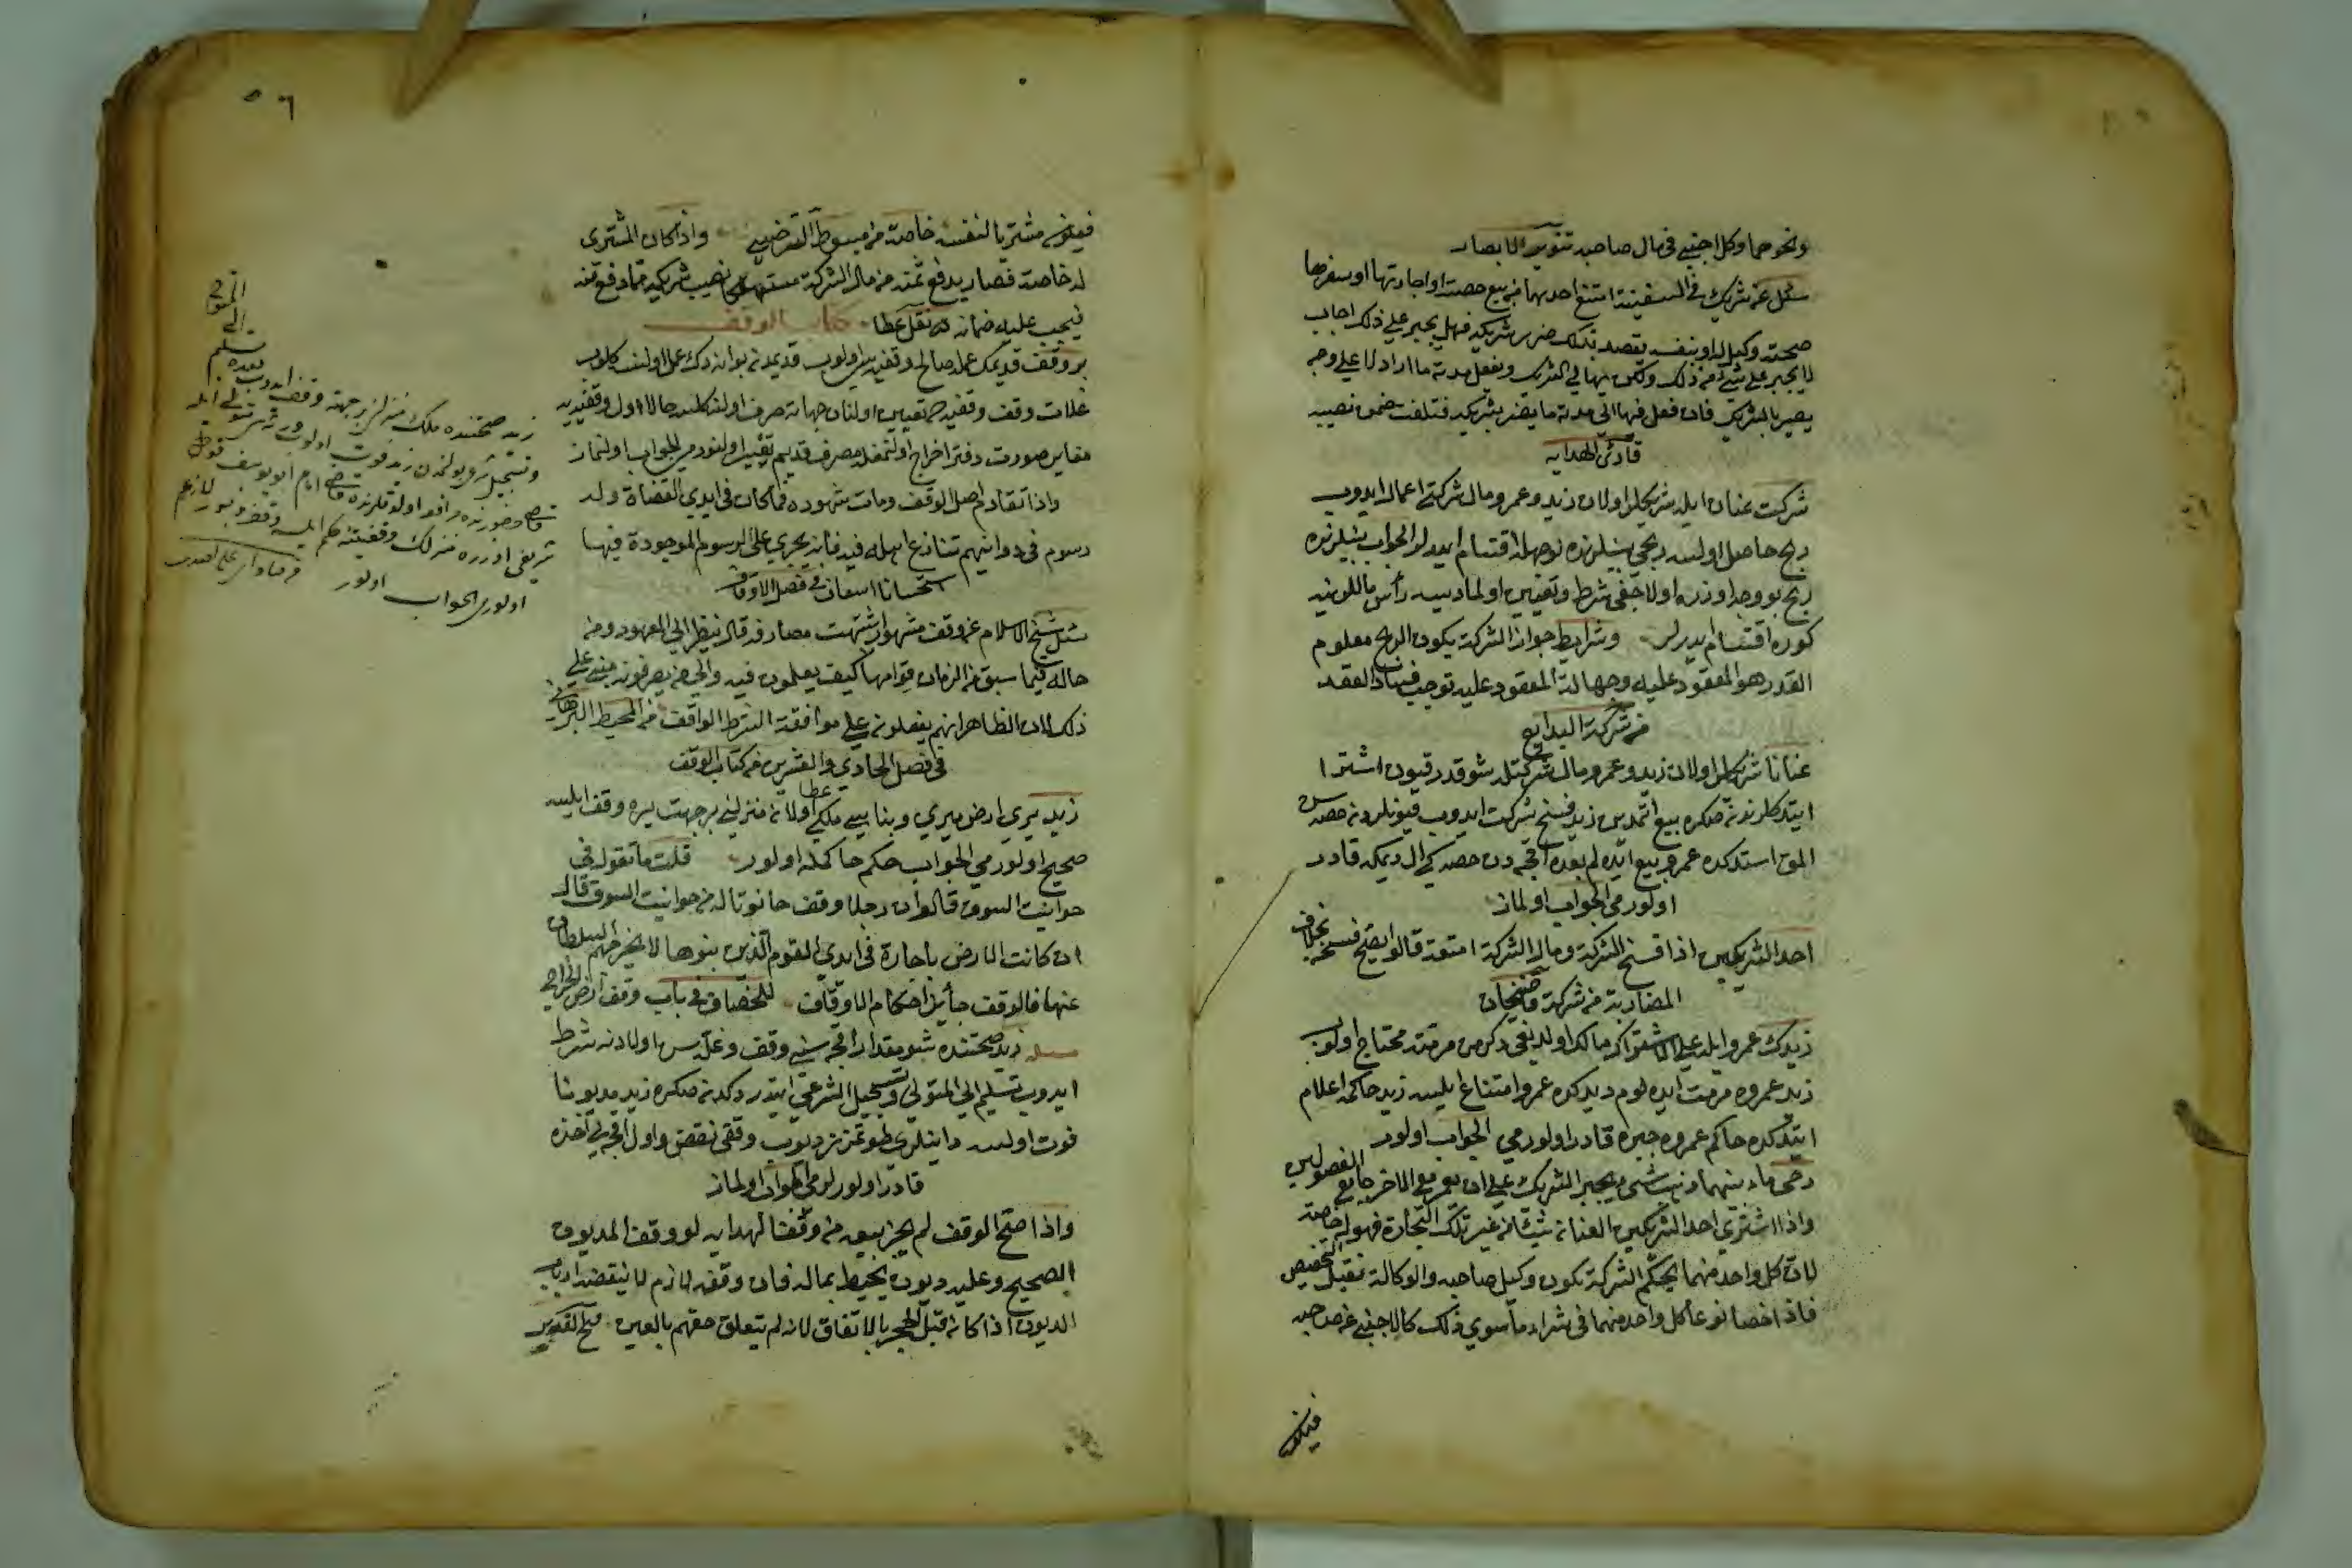 ونحوهما وكل اجنبي في مال صاحبه تنوير الابصار
سئل عن شريك في السفينة امتنع احدهما من بيع حصته او اجارتها او سفرها
صحبة وكيل له او بنفسه يقصد بذلك ضرر شريكه فهل يجبر على ذلك اجاب
لا يجبر على شيء من ذلك ولكن الشريك ويفعل مدة ما اراد لا على وجه
يضر بالشريك فان فعل فيها في مدته ما يضر بشريكه فتلفت ضمن نصيبه
قارئ الهدايه
شركت عنان ايله شريكلر اولان زيد وعمرو مال شركتي اعمال ايدوب
ربح حاصل اولسه ربحي بينلرنده نوجهله اقتسام ايدرلر الجواب بينلرنده
ربح بو وجه اوزره اولاجغي شرط وتعيين اولمادیسه رأس ماللرينه
كوره اقتسام ايدرلر وشرايط جواز الشركة بكون الربح معلوم
القدر هو المعقود عليه وجهالة المعقود عليه توجب فساد العقد
من شركة البدايع
عنانا شريكلر اولان زيد وعمرو مال شركتله شو قدر قيون اشترا
ايتدكلرندن صكره بيع اتمدين زيد فسخ شركت ايدوب قيونلردن حصه سن
المق استدكده عمرو بيع ايده لم بعده اقچه دن حصه كي ال ديمكه قادر
اولور مي الجواب اولماز
احد الشريكين اذا فسخ الشركة ومال الشركة امتعة قالوا يصح فسخه بخلاف
المضاربة من شركة قاضيخان
زيدك عمرو ايله على الاشتراك مالك اولديغي دكرمن مرمته محتاج اولوب
زيد عمروه مرمت ايده لوم ديدكده عمرو امتناع ايلسه زيد حاكمه اعلام
ايتدكده حاكم عمروه جبره قادر اولور مي الجواب اولور
رحى ماء بينهما يجبر الشريك على ان يعمر مع الاخر جامع الفصولين
واذا اشترى احد الشريكين العنان شيئا من غير تلك التجارة فهو له خاصة
لان كل واحد منهما بحكم الشركة يكون وكيل صاحبه والوكالة تقبل التخصيص
فاذا خصا نوعا كل واحد منهما في شراء ما سوى ذلك كالاجنبي عن صاحبه
فيكون
٥٦
فيكون مشتريا لنفسه خاصة من مبسوط السرخسي واذا كان المشترى
له خاصة فصار يدفع ثمنه من مال الشركة مستهلكا نصيب شريكه مما دفع ثمنه
فيجب عليه ضمانه نقل عطا كتاب الوقف
بر وقف قديمك عمله صالح وقفيه سي اولوب قديمدن بو انه دك عمل اولنه كلوب
غلات وقف وقفيه ده تعيين اولنان جهاته صرف اولنه كلسه حالا اول وقفيه يه
مغاير صورت دفتر اخراج اولنمغله مصرف قديم تغيير اولنور مي الجواب اولنماز
واذا تقادم اصل الوقف ومات شهوده فما كان في ايدي القضاة وله
رسوم في دواوينهم تنازع اهله فيه فانه يجري على الرسوم الموجودة فيها
استحسانا اسعاف في فصل الاوقاف
سئل شيخ الاسلام عن وقف مشهور اشتبهت مصارفه قال ينظر الى المعهود من
حاله فيما سبق من الزمان قوامها كيف يعملون فيه والى من يصرفونه فيبني على
ذلك لان الظاهر انهم يفعلونه على موافقة الشرط الواقف من المحيط البرهاني
في فصل الحادي والعشرين من كتاب الوقف
زيد يري ارض ميري وبناسي ملكي اولان منزلني بر جهت بره وقف ايلسه
صحيح اولور مي الجواب حكم حاكمله اولور عطا قلت ما تقول في
حوانيت السوق قالوا ان رجلا وقف حانوتا له من حوانيت السوق قال
ان كانت الارض باجارة في ايدي القوم الذين بنوها لا يخرجهم السلطان
عنها فالوقف جائز احكام الاوقاف للخصاف في باب وقف ارض الخراج
مسئله زيد صحتنده شو مقدار اقچه سني وقف وغله سن اولادنه شرط
ايدوب تسليم الى المتولى وتسجيل الشرعي ايتدردكدن صكره زيد مديونا
فوت اولسه داينلري طوتمزز ديوب وقفي نقض واول اقچه يي اخذه
قادر اولورلر مي الجواب اولماز
واذا صح الوقف لم يجز بيعه من وقف الهدايه لو وقف المديون
الصحيح وعليه ديون يحيط بماله فان وقفه لازم لا ينقضه ارباب
الديون اذا كان قبل الحجر بالاتفاق لانه لم يتعلق حقهم بالعين فتح القدير
زيد صحتنده ملك منزلن بر جهته وقف ايدوب بعده تسليم الى المتولي
وتسجيل شرعي بولمدن زيد فوت اولوب ورثه سي متولي ايله
قاضي حضورنده مرافعه اولدقلرنده قاضي امام ابو يوسف قولى
شريفي اوزره منزلك وقفيتنه حكم ايلسه وقف مزبور لازم
اولور مي الجواب اولور من فتاواى علي افندي